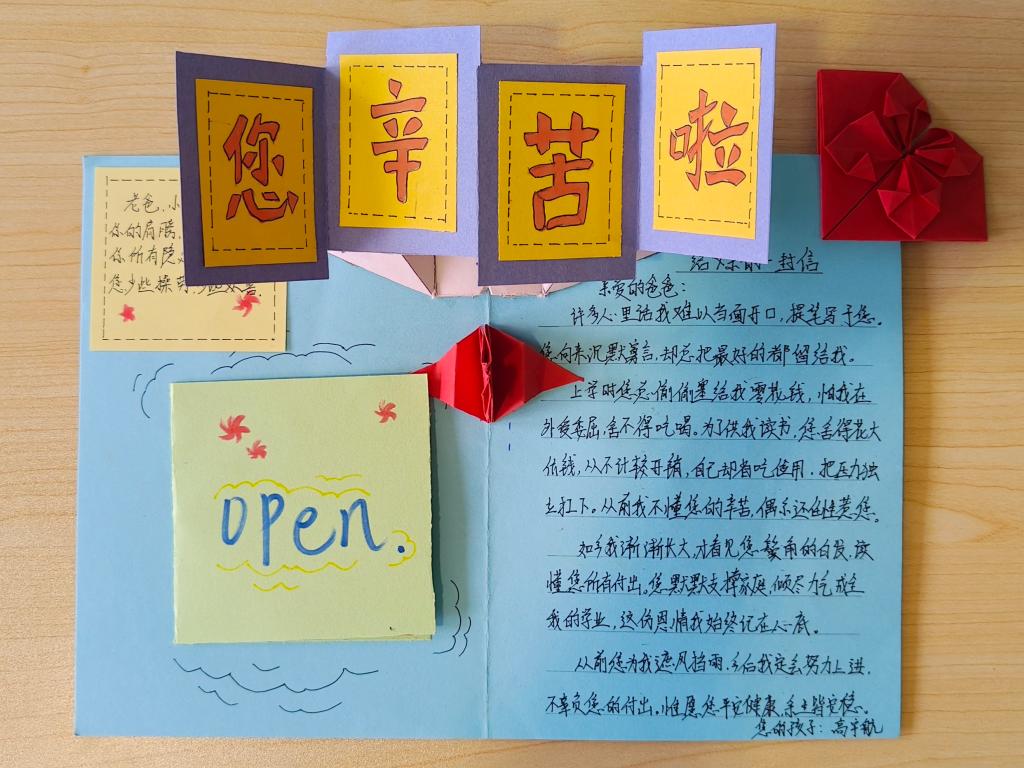 您辛苦啦
老爸,小
你的肩膀,
你所有
您少些操劳,多些欢喜
open.
给父亲的一封信
亲爱的爸爸:
许多心里话我难以当面开口,提笔写于您。
您向来沉默寡言,却总把最好的都留给我。
上学时您总偷偷塞给我零花钱,怕我在
外受委屈,舍不得吃喝。为了供我读书,您舍得花大
价钱,从不计较开销,自己却省吃俭用,把压力独
立扛下。从前我不懂您的辛苦,偶尔还任性惹您。
如今我渐渐长大,才看见您鬓角的白发,读
懂您所有付出。您默默支撑家庭,倾尽力气成全
我的学业,这份恩情我始终记在心底。
从前您为我遮风挡雨,今后我定会努力上进,
不辜负您的付出。惟愿您平安健康,事事皆安稳。
您的孩子:高宇航